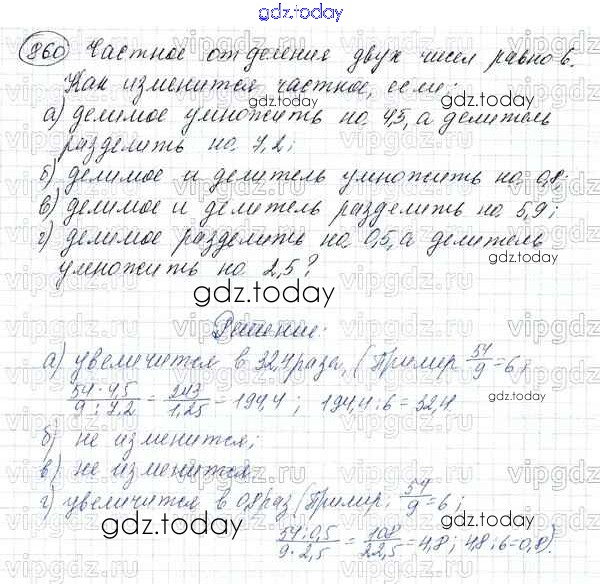 gdz.today
860 Частное от деления двух чисел равно 6.
Как изменится частное, если:
а) делимое умножить на 4,5, а делитель
разделить на 7,2;
б) делимое и делитель умножить на 0,8;
в) делимое и делитель разделить на 5,9;
г) делимое разделить на 0,5, а делитель
умножить на 2,5?
gdz.today
Решение:
а) увеличится в 32,4 раза, (Пример 54/9 = 6;
54 · 4,5 / 9 : 7,2 = 243 / 1,25 = 194,4 ; 194,4 : 6 = 32,4
б) не изменится;
в) не изменится
г) увеличится в 0,8 раз (Пример: 54/9 = 6 ;
54 : 0,5 / 9 · 2,5 = 108 / 22,5 = 4,8 ; 4,8 : 6 = 0,8).
gdz.today